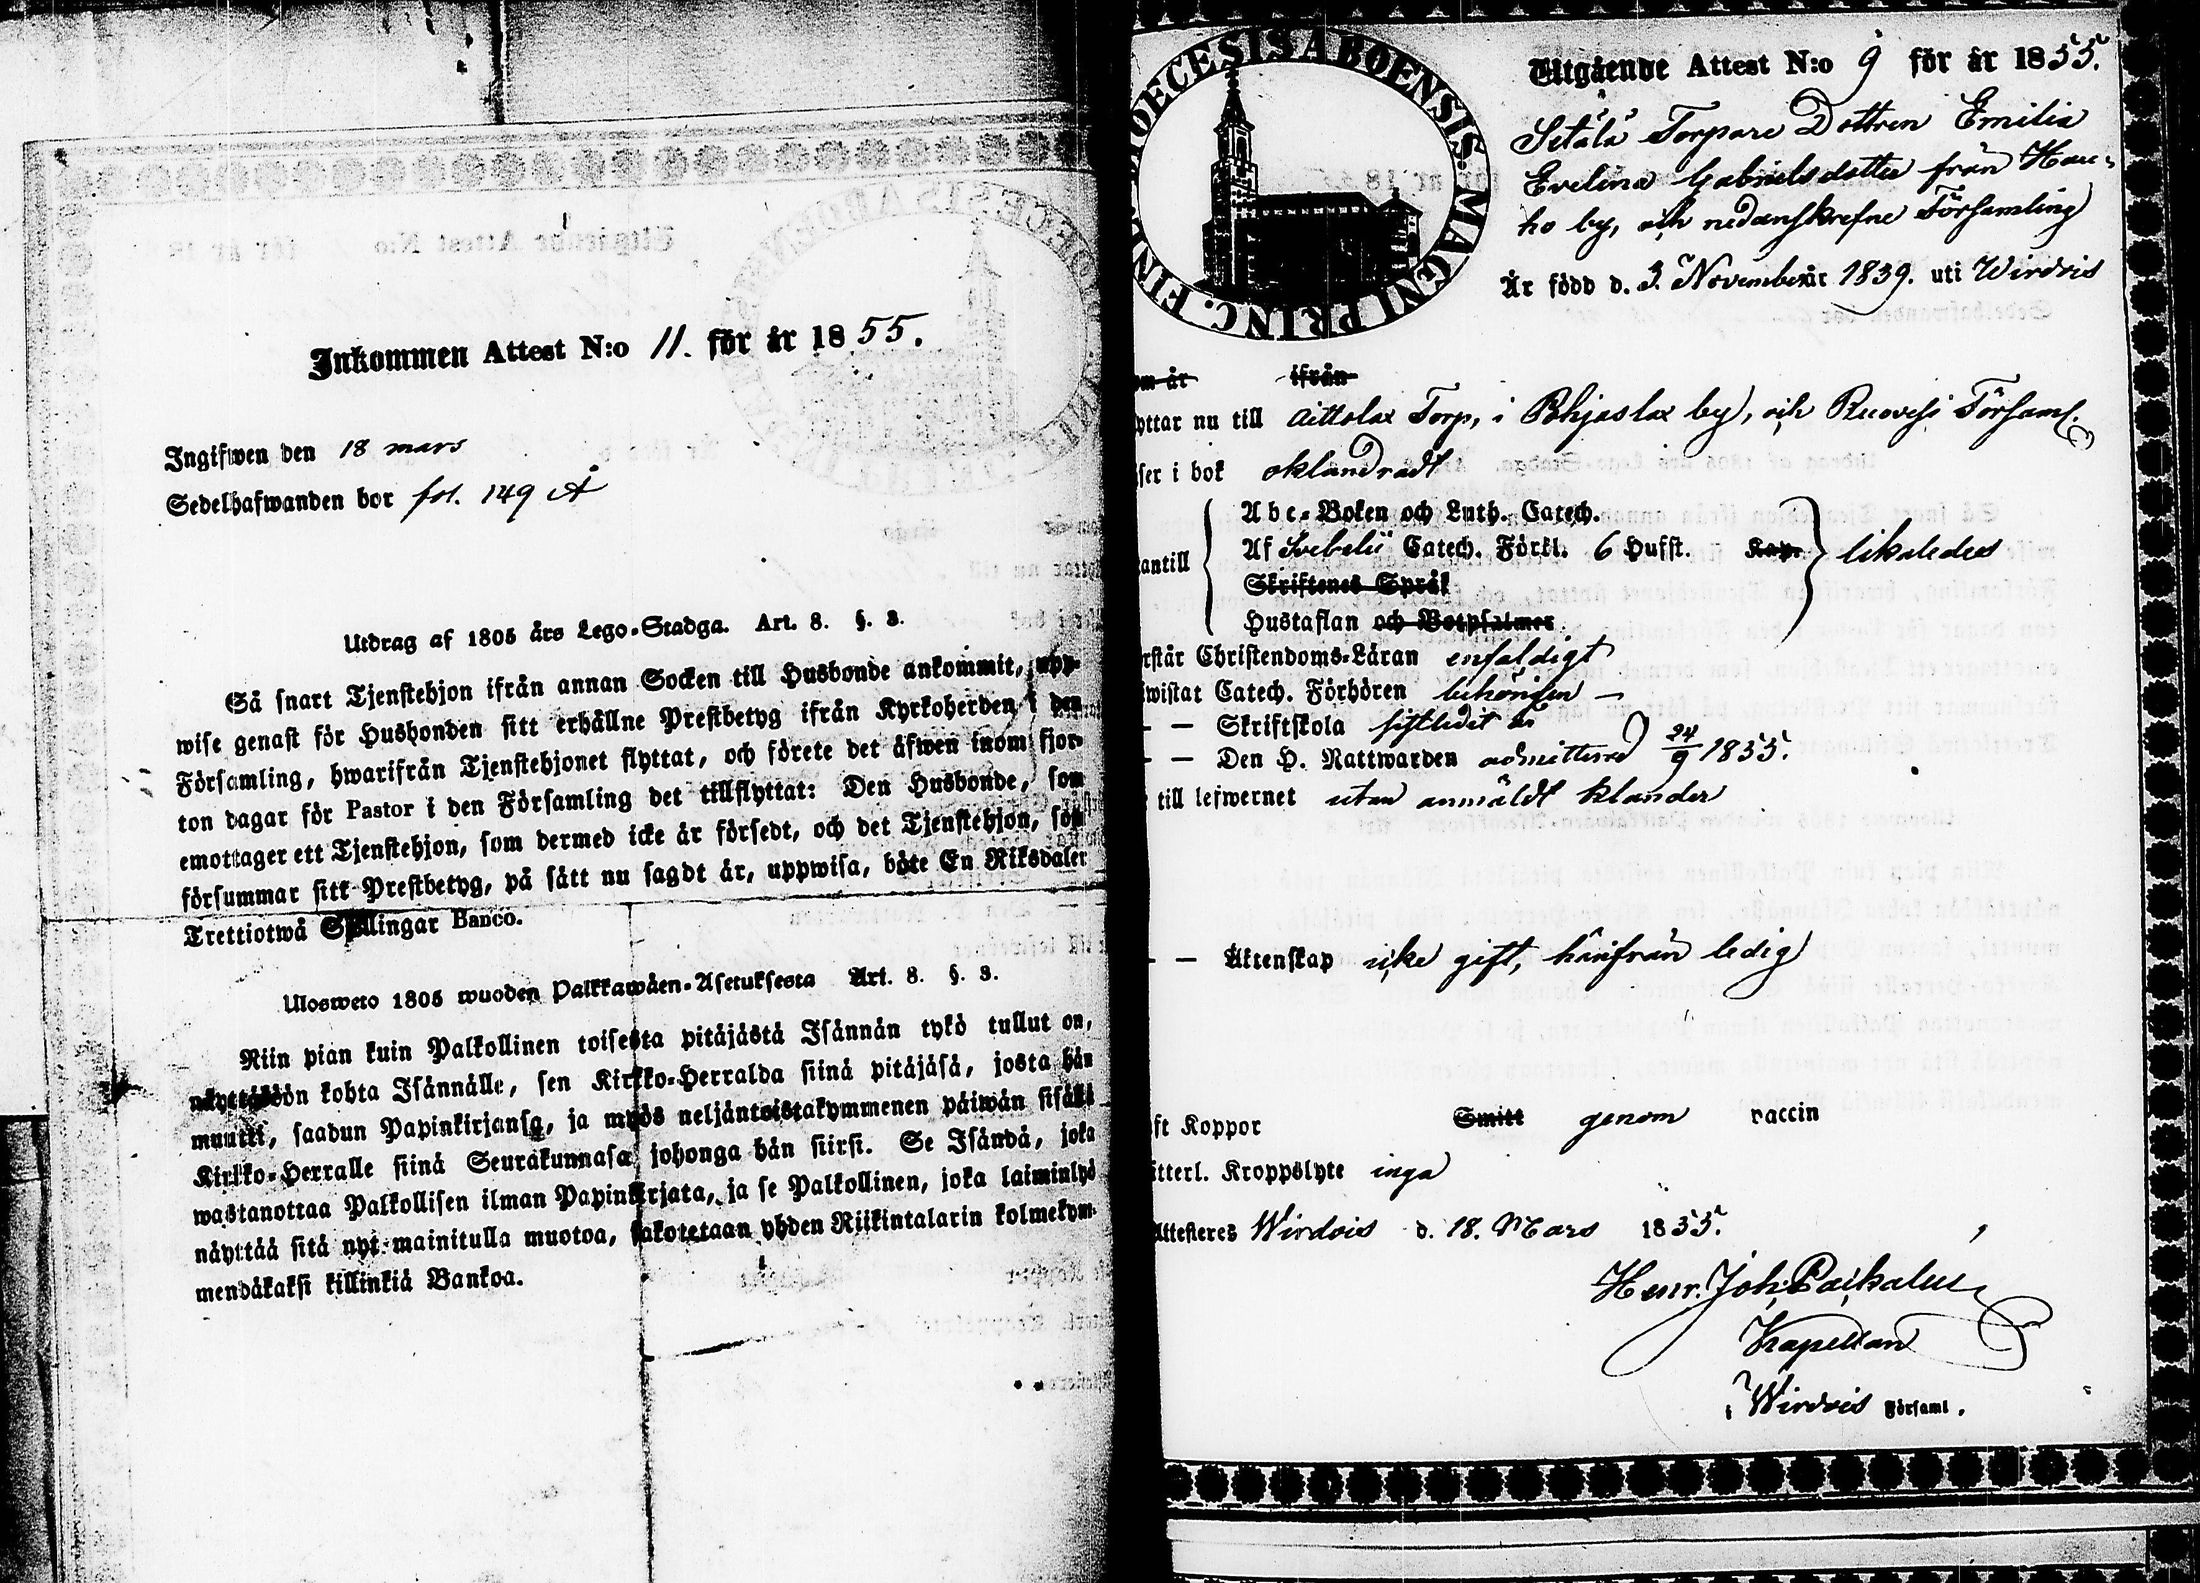 Inkommen Attest N:o 11. för år 1855.
Ingifwen den 18 mars
Sedelhafwanden bor fol. 149 Å
Utdrag af 1805 års Lego-Stadga. Art. 8. §. 3.
Så snart Tjenstehjon ifrån annan Socken till Husbonde ankommit, upp-
wise genast för Husbonden sitt erhållne Prestbetyg ifrån Kyrkoherden i den
Församling, hwarifrån Tjenstehjonet flyttat, och förete det äfwen inom fjor-
ton dagar för Pastor i den Församling det tillflyttat: Den Husbonde, som
emottager ett Tjenstehjon, som dermed icke är försedt, och det Tjenstehjon, som
försummar sitt Prestbetyg, på sätt nu sagdt är, uppwisa, böte En Riksdaler
Trettiotwå Skillingar Banco.
Ulosweto 1805 wuoden Palkkawäen-Asetuksesta Art. 8. §. 3.
Niin pian kuin Palkollinen toisesta pitäjästä Isännän tykö tullut on,
näyttäköön kohta Isännälle, sen Kirkko-Herralda siinä pitäjäsä, josta hän
muutti, saadun Papinkirjansa, ja myös neljäntoistakymmenen päiwän sisällä
Kirkko-Herralle siinä Seurakunnasa johonga hän siirsi. Se Isändä, joka
wastanottaa Palkollisen ilman Papinkirjata, ja se Palkollinen, joka laiminlyö
näyttää sitä nyt mainitulla muotoa, sakotetaan yhden Riikintalarin kolmekym-
mendäkaksi killinkiä Bankoa.
DIOECESIS ABOENSIS MAGNI PRINC. FINL
Utgående Attest N:o 9 för år 1855.
Setälä Torpare Dottren Emilia
Evelina Gabrielsdotter från Hau-
ho by, och nedanskrefne Församling
Är född d. 3. November år 1839. uti Wirdois
om år ifrån
yttar nu till Aittolax Torp, i Pohjaslax by, och Ruovesi Församl.
ser i bok oklandradt
Abc-Boken och Luth. Catech.
antill Af Svebelii Catech. Förkl. 6 Hufst. Kap. likaledes
Skriftenes Språk
Hustaflan och Botpsalmer
rstår Christendoms-Läran enfaldigt
iwistat Catech. Förhören behörigen —
— — Skriftskola sistledit år
— — Den H. Nattwarden admitterad 24/9 1855.
till lefwernet utan anmäldt klander
— — Äktenskap icke gift, härifrån ledig
ft Koppor Smitt genom vaccin
itterl. Kroppslyte inga
Attesteres Wirdois d. 18. Mars 1855.
Henr. Joh. Paikalin
Kapellan
i Wirdois Församl.